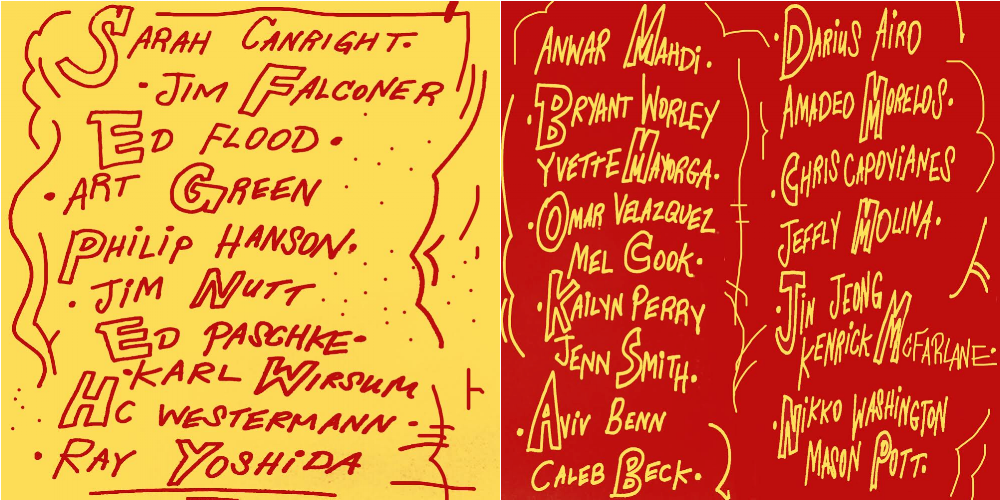 SARAH CANRIGHT.
·JIM FALCONER
ED FLOOD·
·ART GREEN
PHILIP HANSON.
·JIM NUTT
ED PASCHKE·
·KARL WIRSUM
HC WESTERMANN·
·RAY YOSHIDA
ANWAR MAHDI.
·BRYANT WORLEY
YVETTE MAYORGA.
·OMAR VELAZQUEZ
MEL COOK.
·KAILYN PERRY
JENN SMITH.
·AVIV BENN
CALEB BECK.
·DARIUS AIRO
AMADEO MORELOS.
·CHRIS CAPOYIANES
JEFFLY MOLINA.
·JIN JEONG
KENRICK MCFARLANE·
·NIKKO WASHINGTON
MASON POTT.